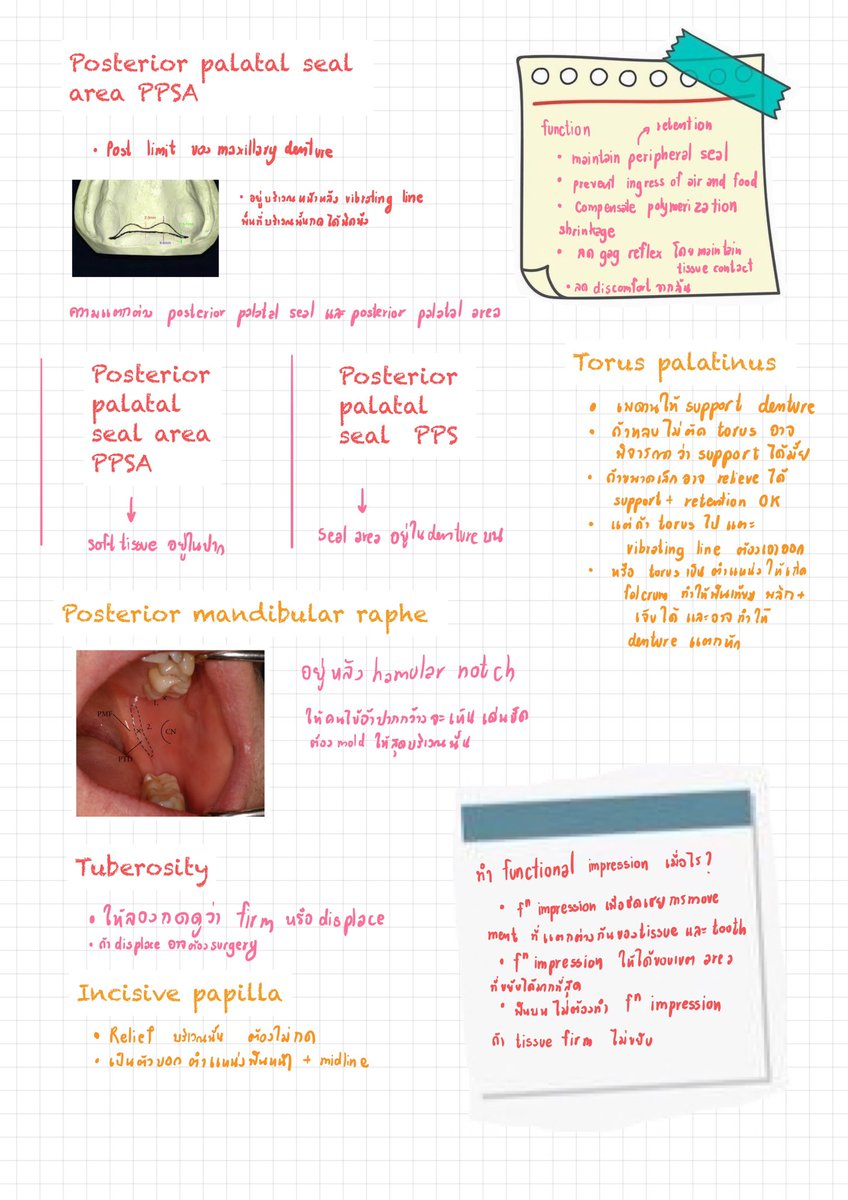 Posterior palatal seal
area PPSA
• Post limit ของ maxillary denture
• อยู่บริเวณหน้าหลัง vibrating line
พื้นที่บริเวณนั้นกดได้นิดนึง
function
retention
• maintain peripheral seal
• prevent ingress of air and food
• Compensate polymerization
shrinkage
• ลด gag reflex โดย maintain
tissue contact
• ลด discomfort จากลิ้น
ความแตกต่าง posterior palatal seal และ posterior palatal area
Posterior
palatal
seal area
PPSA
soft tissue อยู่ในปาก
Posterior
palatal
seal PPS
seal area อยู่ใน denture บน
Torus palatinus
• เพดานให้ support denture
• ถ้า ไม่ตัด torus อาจ
พิจารณาว่า support ได้มั้ย
• ถ้าขนาดเล็กอาจ relieve ได้
support + retention OK
• แต่ถ้า torus ไปแตะ
vibrating line ต้องเอาออก
• หรือ torus เป็นตำแหน่งให้เกิด
fulcrum ทำให้ฟันเทียมพลิก +
เจ็บได้ และอาจทำให้
denture แตกหัก
Posterior mandibular raphe
1.
PMF
2.
CN
PTD
อยู่หลัง hamular notch
ให้คนไข้อ้าปากกว้างจะเห็นเด่นชัด
ต้อง mold ให้สุดบริเวณนั้น
Tuberosity
• ให้ลองกดดูว่า firm หรือ displace
• ถ้า displace อาจต้อง surgery
Incisive papilla
• Relief บริเวณนั้น ต้องไม่กด
• เป็นตัวบอกตำแหน่งฟันหน้า + midline
ทำ functional impression เมื่อไร?
• fⁿ impression เพื่อชดเชย การmove
ment ที่แตกต่างกันของ tissue และ tooth
• fⁿ impression ให้ได้ขอบเขต area
ที่ขยับได้มากที่สุด
• ฟันบน ไม่ต้องทำ fⁿ impression
ถ้า tissue firm ไม่ขยับ